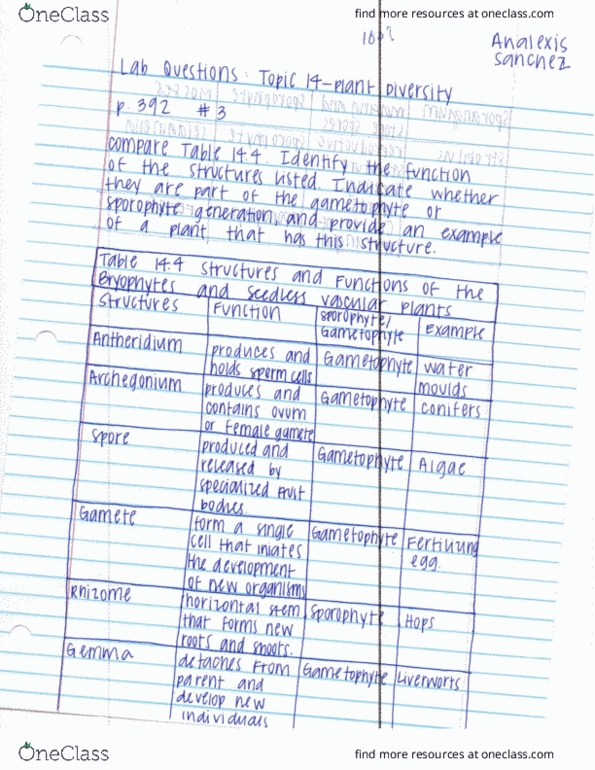 OneClass
find more resources at oneclass.com
Analexis
Sanchez
Lab Questions: Topic 14-plant Diversity
p. 392 #3
compare Table 14.4. Identify the function
of the structures listed. Indicate whether
they are part of the gametophyte or
sporophyte generation, and provide an example
of a plant that has this structure.
Table 14.4 structures and Functions of the
Bryophytes and seedless vascular plants
structures Function sporophyte/ Example
Gametophyte
Antheridium produces and Gametophyte water
holds sperm cells movlds
Archegonium produces and Gametophyte conifers
contains ovum
or female gamete
spore produced and Gametophyte Algae
released by
specialized fruit
bodies.
Gamete form a single Gametophyte Fertilizing
cell that iniates egg.
the development
of new organisms
Rhizome horizontal stem Sporophyte Hops
that forms new
roots and shoots.
Gemma detaches from Gametophyte Liverworts
parent and
develop new
individuals
OneClass
find more resources at oneclass.com